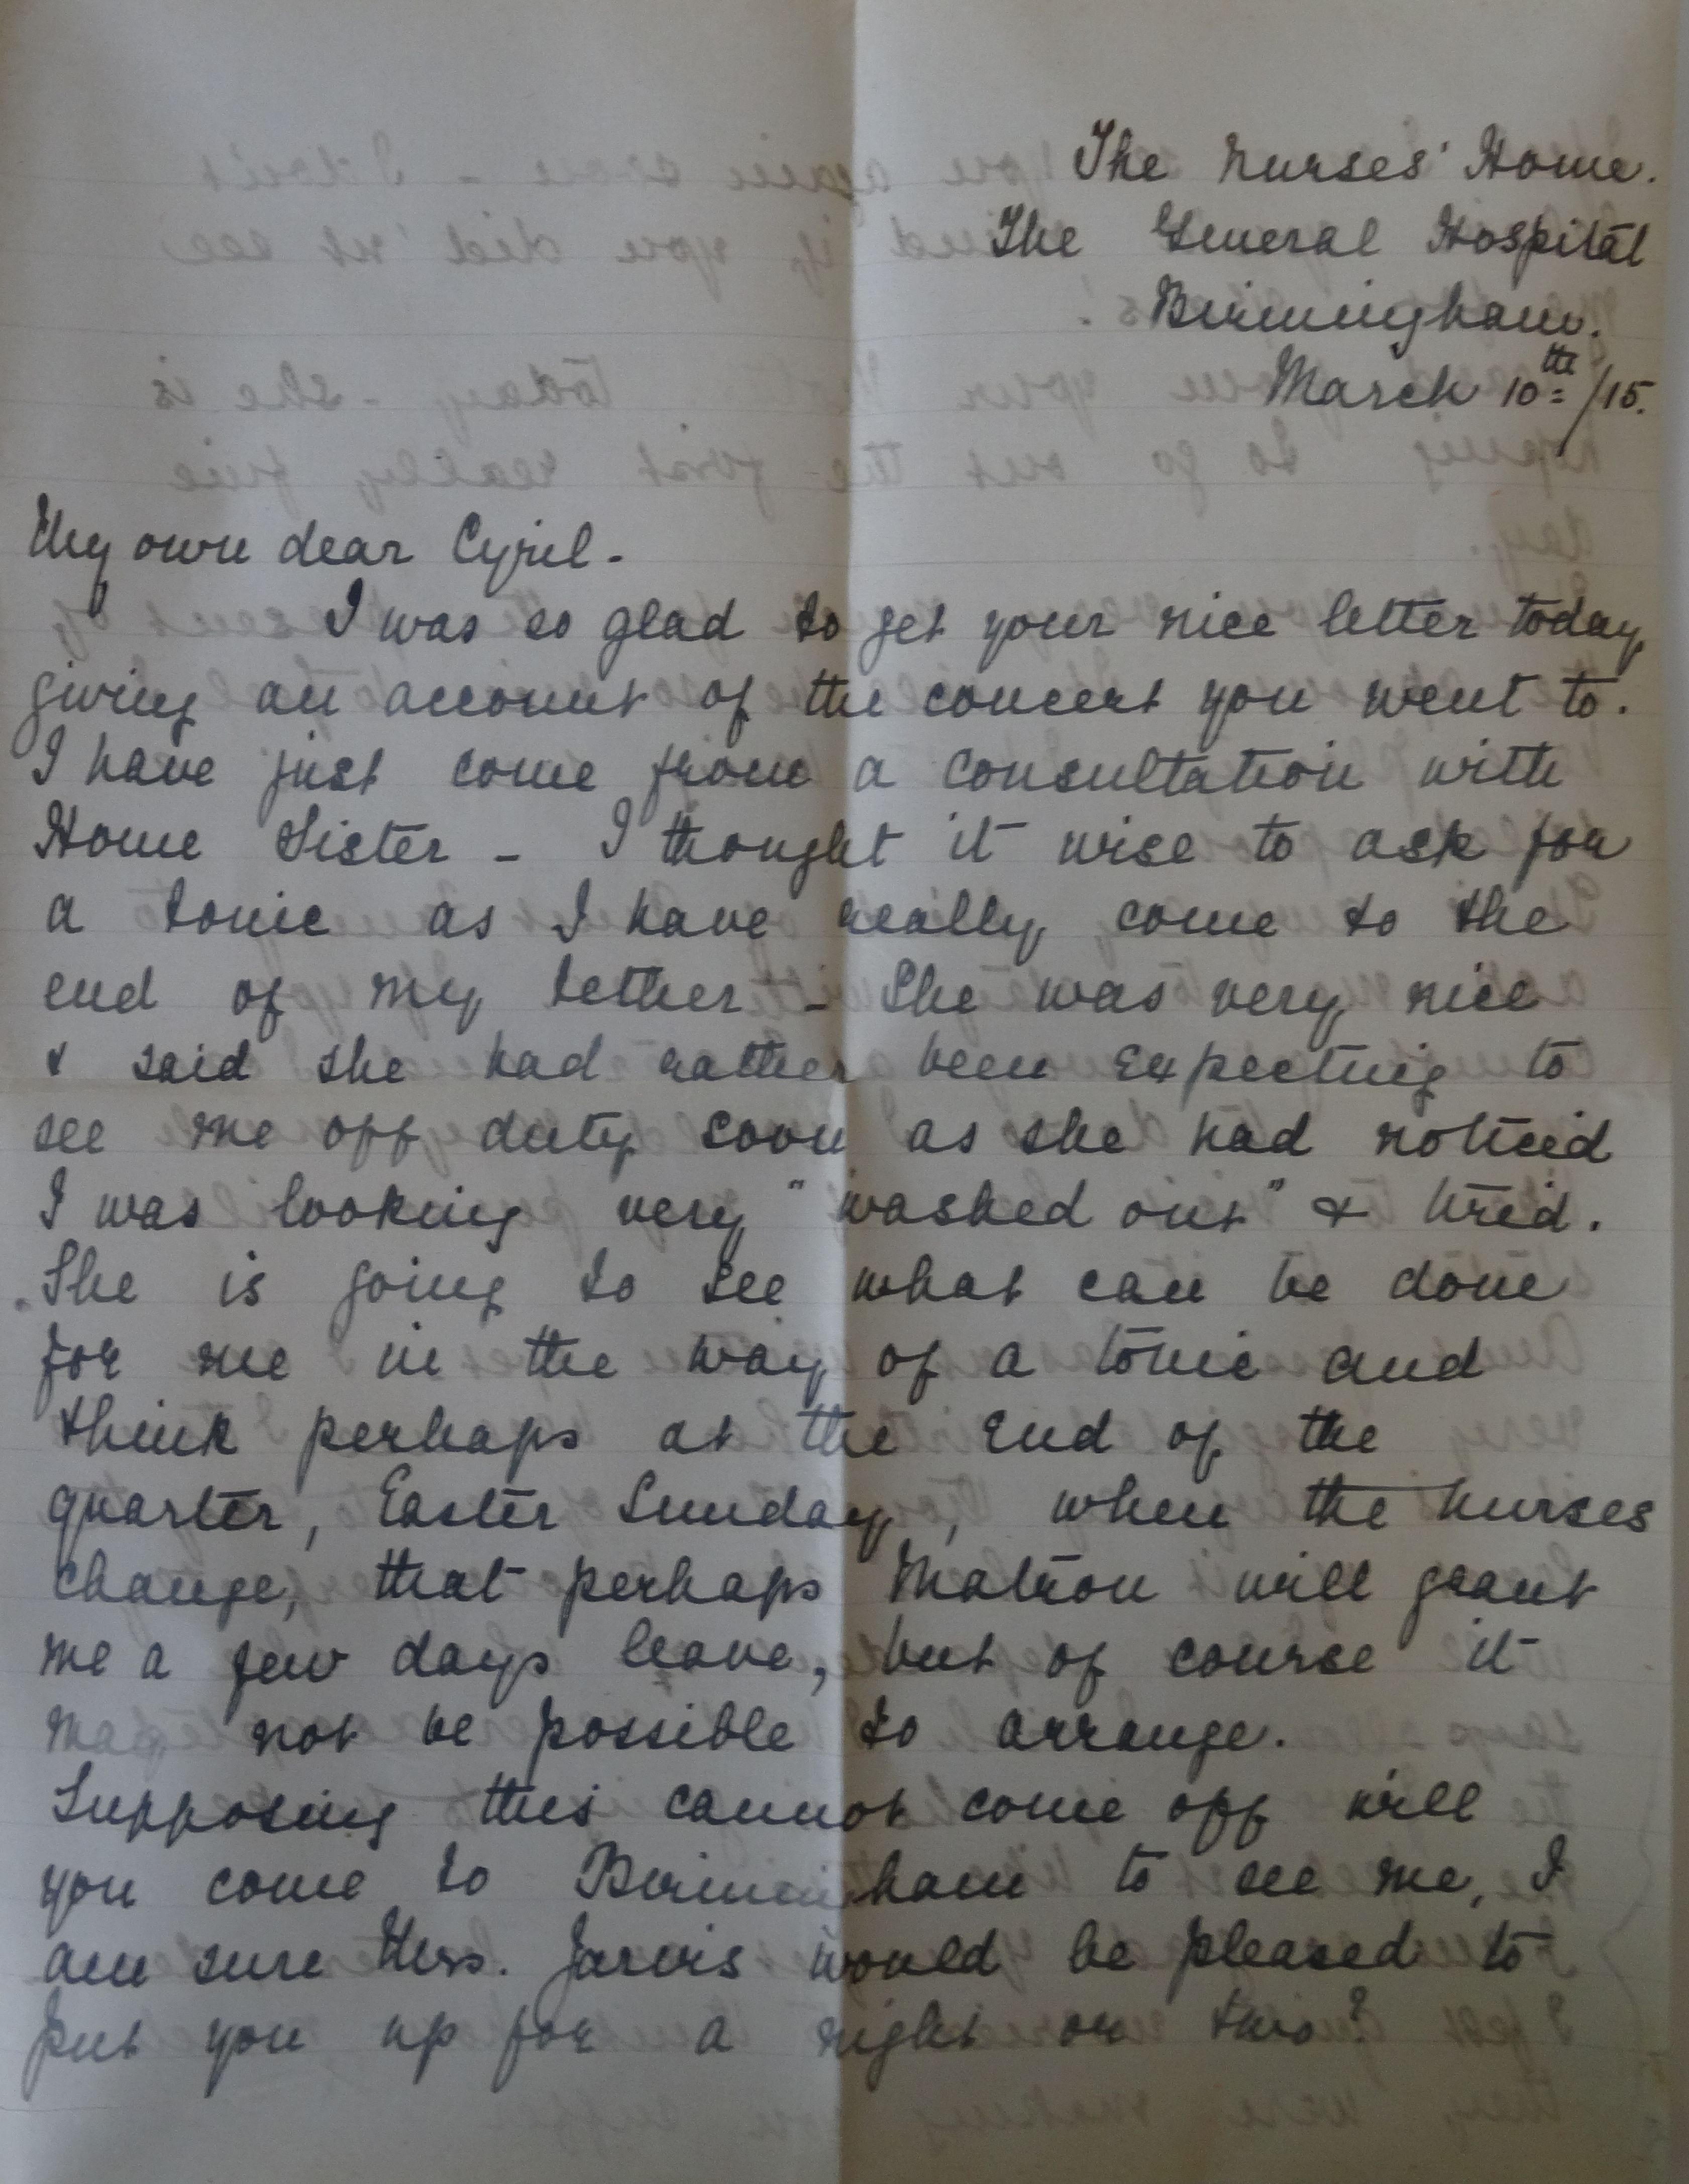 The Nurses' Home.
The General Hospital
Birmingham.
March 10th/15.
My own dear Cyril -
I was so glad to get your nice letter today,
giving an account of the concert you went to.
I have just come from a consultation with
Home Sister - I thought it wise to ask for
a tonic as I have really come to the
end of my tether - She was very nice
& said she had rather been expecting to
see me off duty soon as she had noticed
I was looking very "washed out" & tired.
She is going to see what can be done
for me in the way of a tonic and
think perhaps at the end of the
quarter, Easter Sunday, when the nurses
change, that perhaps Matron will grant
me a few days leave, but of course it
may not be possible to arrange.
Supposing this cannot come off will
you come to Birmingham to see me, I
am sure Mrs. Jarvis would be pleased to
put you up for a night or two?